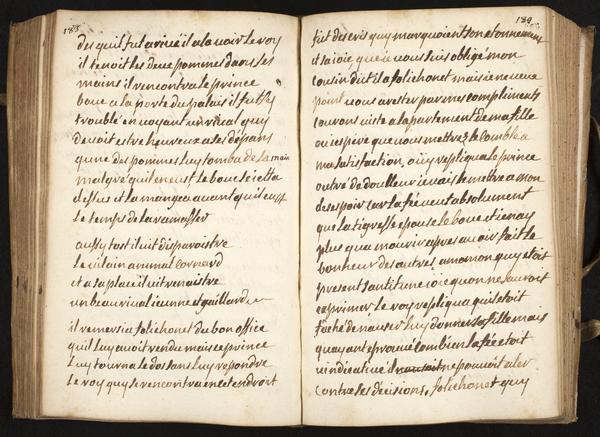 188
des quil fut arivé il ala voir le roy
il tenoit les deux pommes dans ses
mains il rencontra le prince
bouc a la porte du palais il fut si
troublé en voyant un rival quy
devoit estre heureux a ses depans
qune des pommes luy tomba de la main
malgré quil en eust, le bouc se jetta
dessus et la mangea avant quil eust
le temps de la ramasser
aussy tost il vit disparoistre
le vilain animal cornard
et a sa place il vit renaistre
un beau rival jeune et gaillard
il remersia folichonet du bon office
quil luy avoit rendu mais ce prince
luy tourna le dos sans luy repondre
le roy quy se rencontra en cet endroit
189
fit des cris quy marquoient son etonnement
et sa joie que je vous suis obligé mon
cousin dit il a folichonet mais je ne veux
point vous arester par mes compliments
courons viste a lapartement de ma fille
ou jespere que vous mettrez le comble a
ma satisfaction, ouy repliqua le prince
outré de douleur je vais le mettre a mon
desespoir car la fée veut absolument
que la tigresse epouse le bouc et je nay
plus qua mourir apres avoir fait le
bonheur des autres, amamon quy etoit
present santit une joie quon ne sauroit
exprimer le roy repliqua quil etoit
faché de nauser luy donner sa fille mais
quayant eprouvé combien la fée etoit
vindicative il ne pouvoit aler
contre ses decisions, folichonet quy